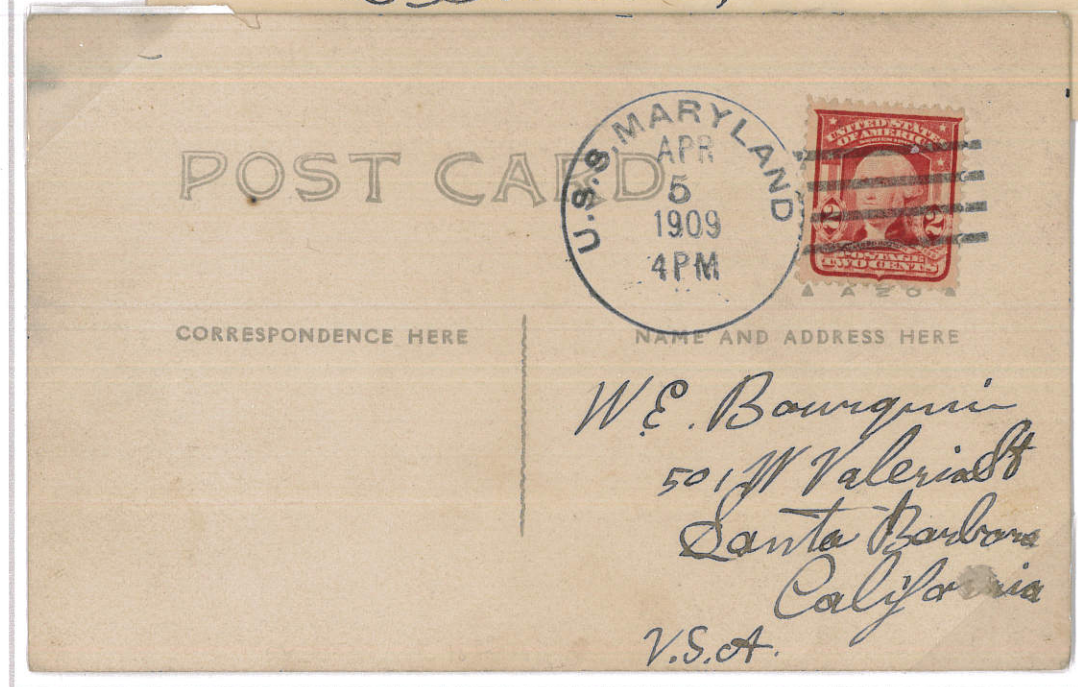 POST CARD
U.S.S. MARYLAND
APR
5
1909
4 PM
UNITED STATES
OF AMERICA
2 2
POSTAGE
TWO CENTS
AZO
CORRESPONDENCE HERE
NAME AND ADDRESS HERE
W. E. Bourquin
501 W Valerio St
Santa Barbara
California
U.S.A.